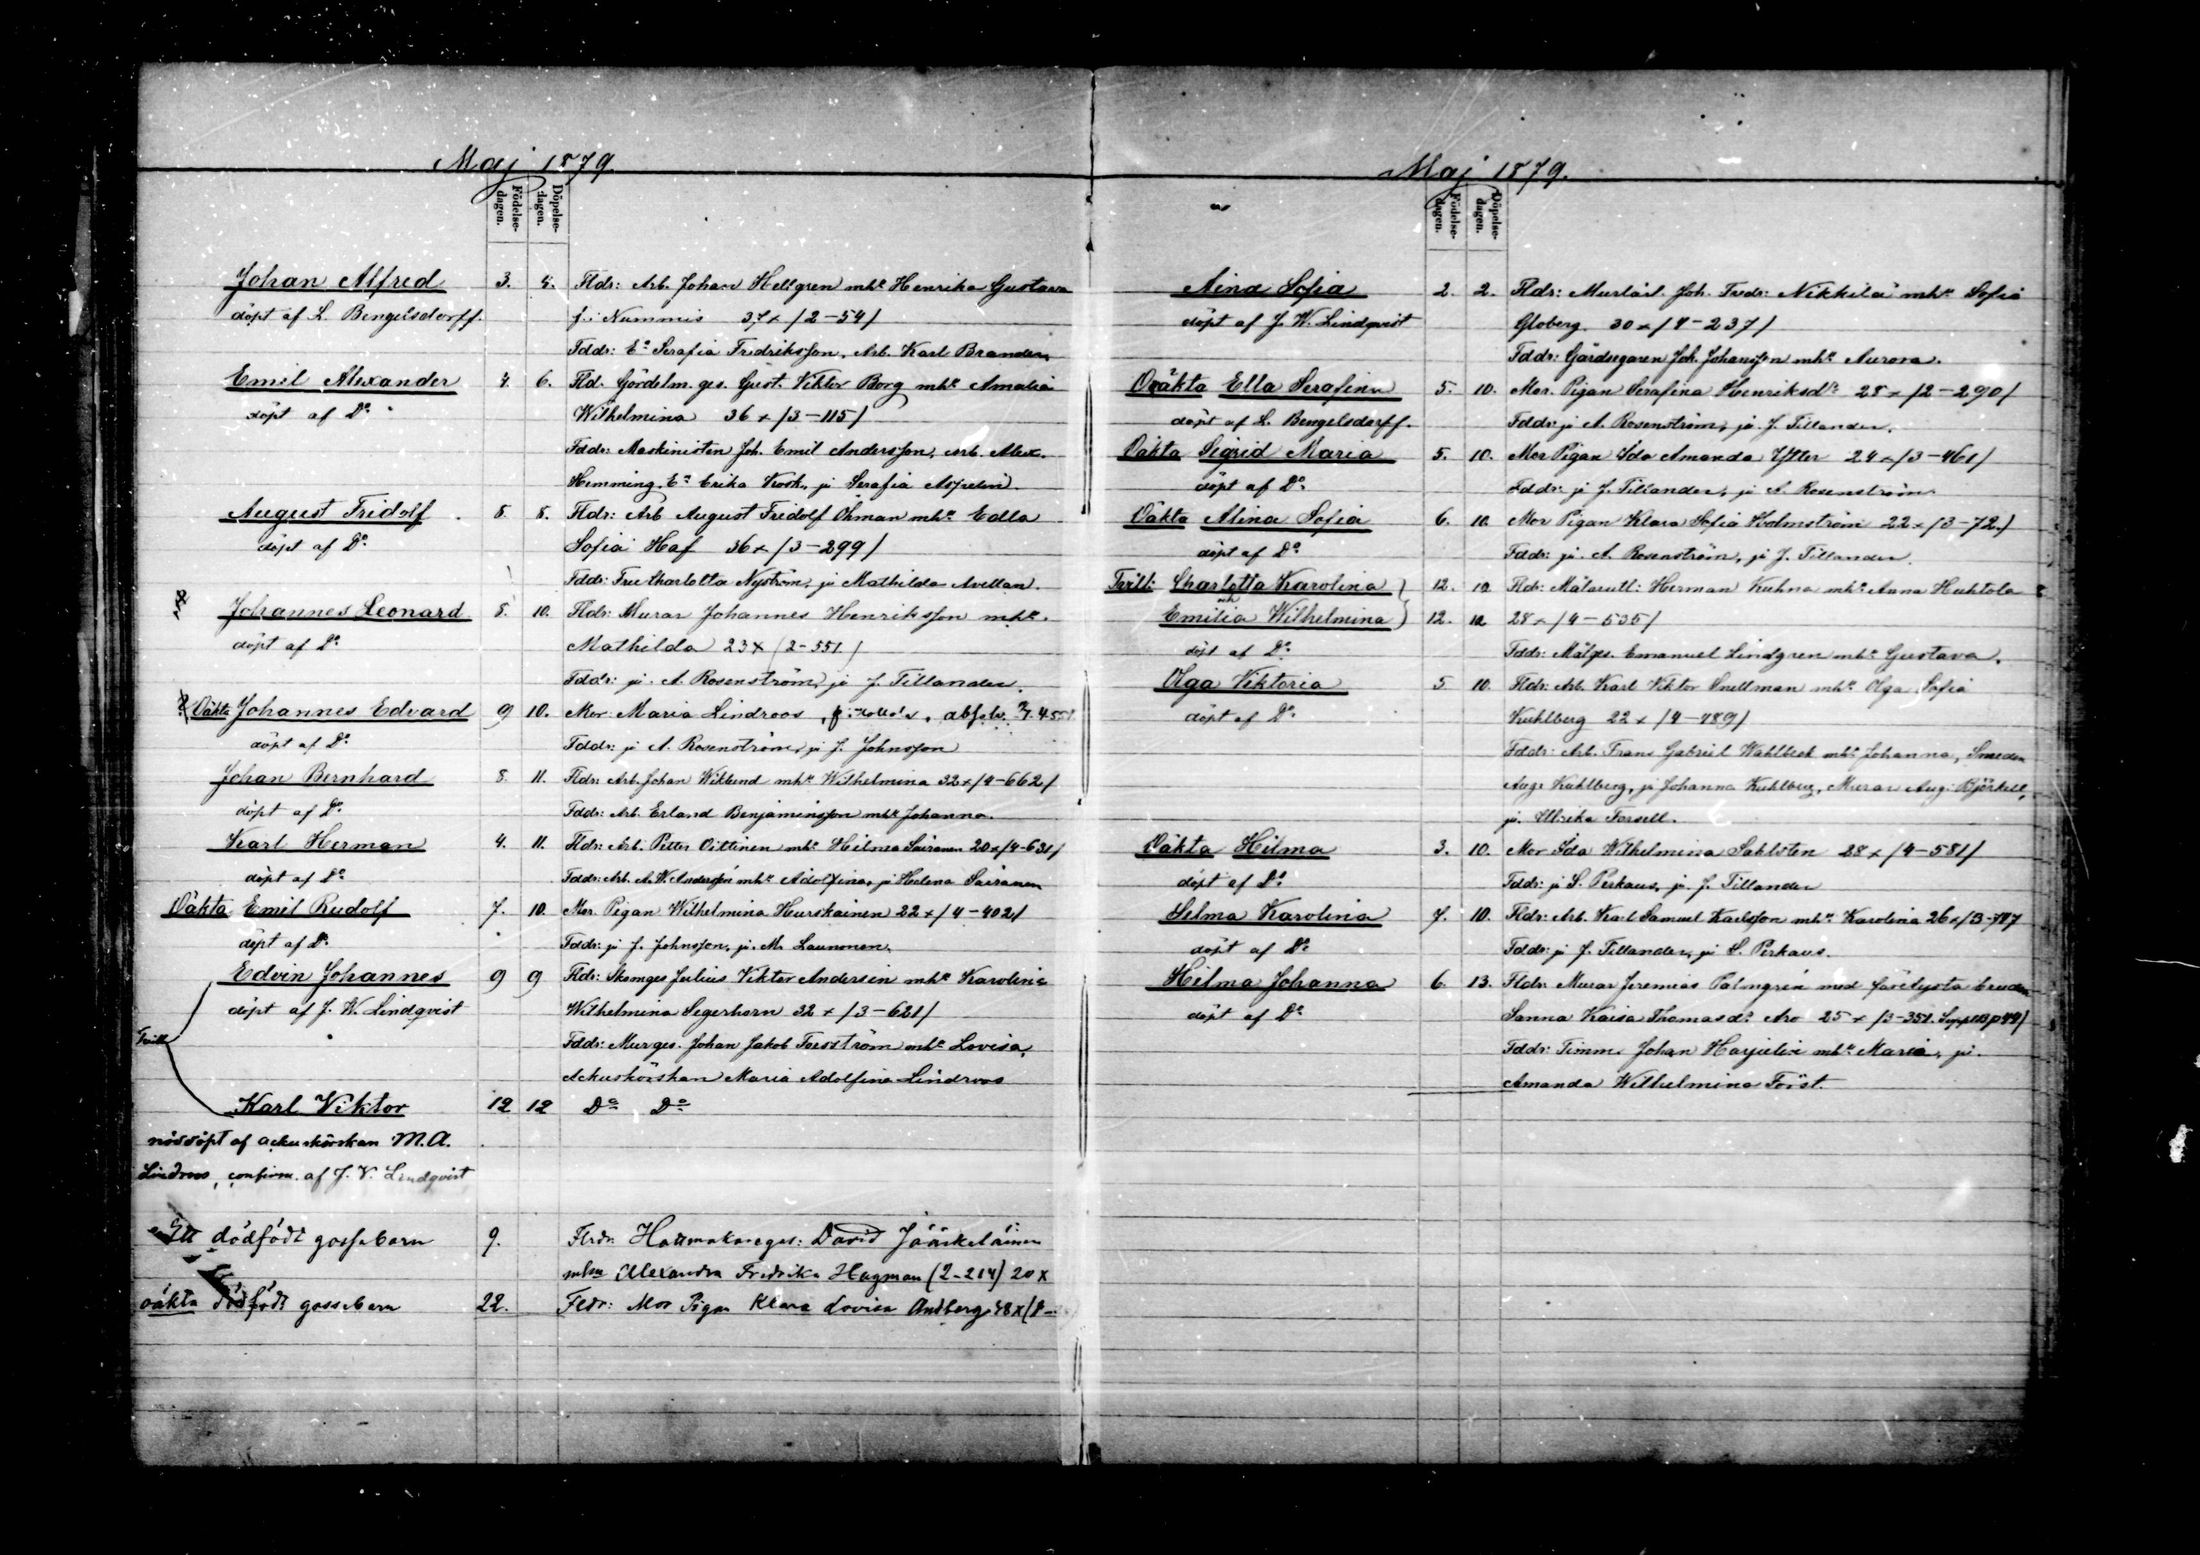 Maj 1879.
Födelse-dagen. Döpelse-dagen.
Johan Alfred 3. 5. Fldr: Arb. Johan Hellgren mhu Henrika Gustava
döpt af L. Bengelsdorff. f. Nummis 37 x /2-54/
Fddr: Ea Serafia Fredriksson, Arb. Karl Brander,
Emil Alexander 4. 6. Fld. Gördelm. ges. Gust. Viktor Borg mhu Amalia
döpt af Do Wilhelmina 36 x /3-115/
Fddr: Maskinisten Joh. Emil Andersson, Arb. Alex.
Hemming, Ea Erika Kosk, ja Serafia Aspelin.
August Fridolf 5. 8. Fldr: Arb August Fridolf Öhman mhu Edla
döpt af Do Sofia Haf 36 x /3-299/
Fddr: Fru Charlotta Nyström, ja Mathilda Avellan.
Johannes Leonard 5. 10. Fldr: Murar Johannes Henriksson mhu
döpt af Do Mathilda 23 x /2-551/
Fddr: ja A. Rosenström, ja J. Tillander.
Oäkta Johannes Edvard 9 10. Mor: Maria Lindroos, absolv.
döpt af Do Fddr: ja A. Rosenström, ja J. Johnsson
Johan Bernhard 8. 11. Fldr: Arb. Johan Wiklund mhu Wilhelmina 32 x /4-662/
döpt af Do Fddr: Arb. Erland Benjaminsson mhu Johanna.
Karl Herman 4. 11. Fldr: Arb. Petter Oittinen mhu Hilma Sairanen 20 x /4-631/
döpt af Do Fddr: Arb. A. W. Andersson mhu Adolfina, ja Helena Sairanen
Oäkta Emil Rudolf 7. 10. Mor. Pigan Wilhelmina Hurskainen 22 x /4-402/
döpt af Do Fddr: ja J. Johnsson, ja M. Launonen.
Edvin Johannes 9 9 Fldr: Skomges Julius Viktor Andersin mhu Karolina
döpt af J. W. Lindqvist Wilhelmina Segerhorn 32 x /3-621/
Tvill Fddr: Murges. Johan Jakob Forsström mhu Lovisa,
Ackuskörskan Maria Adolfina Lindroos
Karl Viktor 12 12 Do Do
nöddöpt af ackuskörskan M. A.
Lindroos, confirm. af J. V. Lindqvist
Ett dödfödt gossebarn 9. Flrdr: Hattmakareges: David Jääskeläinen
mhu Alexandra Fredrika Hagman (2-214) 20 x
oäkta dödfödt gossebarn 22. Fldr: Mor Pigan Klara Lovisa Andberg 48 x
Maj 1879.
Födelse-dagen. Döpelse-dagen.
Aina Sofia 2. 2. Fldr: Murlärl. Joh. Fredr: Nikkilä mhu Sofia
döpt af J. W. Lindqvist Globerg. 30 x /4-237/
Fddr: Gårdsegaren Joh. Johansson mhu Aurora.
Oäkta Ella Serafina 5. 10. Mor. Pigan Serafina Henriksdr 28 x /2-290/
döpt af L. Bengelsdorff. Fddr: ja A. Rosenström, ja J. Tillander.
Oäkta Sigrid Maria 5. 10. Mor Pigan Ida Amanda Ytter 24 x /3-461/
döpt af Do Fddr: ja J. Tillander, ja A. Rosenström.
Oäkta Alina Sofia 6. 10. Mor Pigan Klara Sofia Holmström 22 x /3-72/
döpt af Do Fddr: ja A. Rosenström, ja J. Tillander.
Tvill: Charlotta Karolina 12. 12. Fldr: Målareutl: Herman Kuhna mhu Anna Huhtola
och
Emilia Wilhelmina 12. 12 28 x /4-535/
döpt af Do Fddr: Målges. Emanuel Lindgren mhu Gustava.
Olga Viktoria 5 10. Fldr: Arb. Karl Viktor Snellman mhu Olga Sofia
döpt af Do Kuhlberg 22 x /4-489/
Fddr: Arb. Frans Gabriel Wahlbeck mhu Johanna, Smeden
Aug: Kuhlberg, ja Johanna Kuhlberg, Murar Aug: Björkell,
ja. Ulrika Forsell.
Oäkta Hilma 3. 10. Mor Ida Wilhelmina Sahlsten 28 x /4-581/
döpt af Do Fddr: ja S. Perkaus, ja. J. Tillander
Selma Karolina 7. 10. Fldr: Arb. Karl Samuel Karlsson mhu Karolina 26 x /3-787
döpt af Do Fddr: ja J. Tillander, ja S. Perkaus.
Hilma Johanna 6. 13. Fldr: Murar Jeremias Palmgren med förelysta bruden
döpt af Do Sanna Kaisa Thomasdr Aro 25 x /3-351. Suppl
Fddr: Timm. Johan Harjulin mhu Maria, ja.
Amanda Wilhelmina Först.